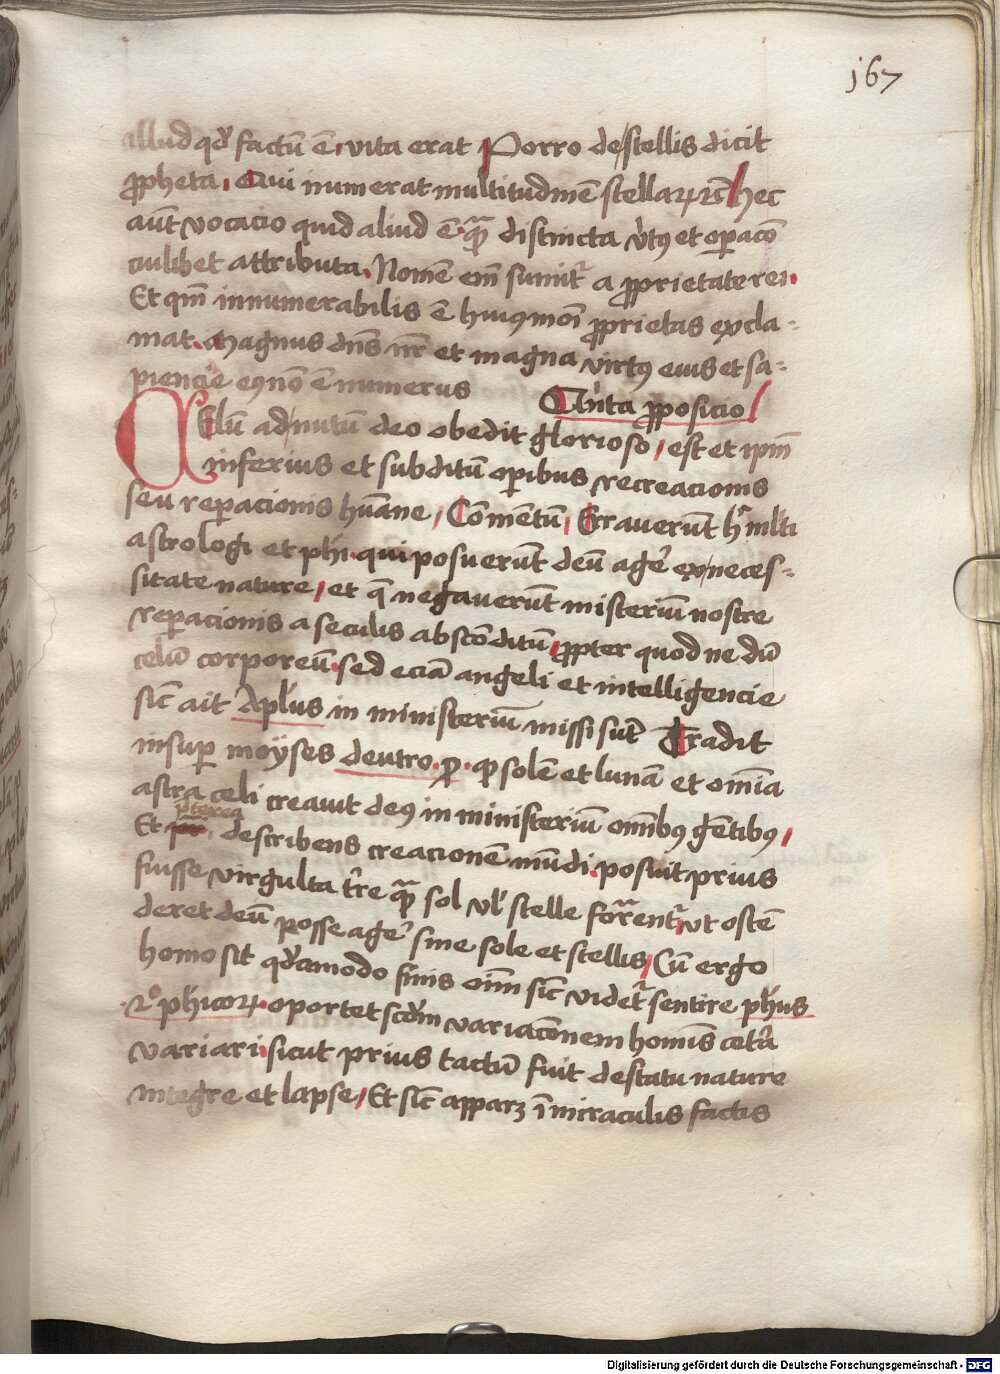 j67
illud qd factū ē vita erat Porro de stellis dicit
ꝓpheta, Qui numerat multitudinē stellaꝝ ⁊c̄ hec
aūt vocacio quid aliud ē qᵃ̄ distincta v̓tꝰ et oꝑacō
cuilibet attributa. Nomē em̄ sumit᷑ a ꝓprietate rei.
Et qm̄ innumerabilis ē huiꝰmōi ꝓprietas excla-
mat. Magnus dn̄s nr̄ et magna virtꝰ eius et sa-
piencie eꝰ nō ē numerus
Qn̓ta ꝓposicio
Celū ad nutū deo obedit glorioso, est et ip̄m
inferius et subditū oꝑibus recreacionis
seu reꝑacionis hūane, Comentū, Errauerūt h̓ ml̓ti
astrologi et ph̓i qui posuerūt deū age᷑ ex neces-
sitate nature, et q̄ negauerūt misteriū nostre
reꝑacionis a seculis abscōditū, ꝓpter quod ne dū
celū corporeū. sed eciā angeli et intelligencie
sic̄ ait Apl̓us in ministeriū missi sūt Tradit
insuꝑ moÿses deutro. ꝙ solē et lunā et om̄ia
astra celi creauit deꝰ in ministeriū om̄ibꝰ gētibꝰ,
p̄terea
Et describens creacionē mūdi. posuit prius
fuisse virgulta t̓re qᵃ̄ sol vl̓ stelle forᵃent᷑, vt ostē
deret deū posse age᷑ sine sole et stellis, Cū ergo
homo sit qd̓amodo finis oīm sic̄ videt᷑ sentire ph̓us
2º ph̓icoꝝ. oportet scd̓m variacōnem homīs cet̓a
variari. sicut prius tactū fuit de statu nature
integre et lapse, Et sic̄ apparꝫ ī miraculis factis
Digitalisierung gefördert durch die Deutsche Forschungsgemeinschaft - DFG